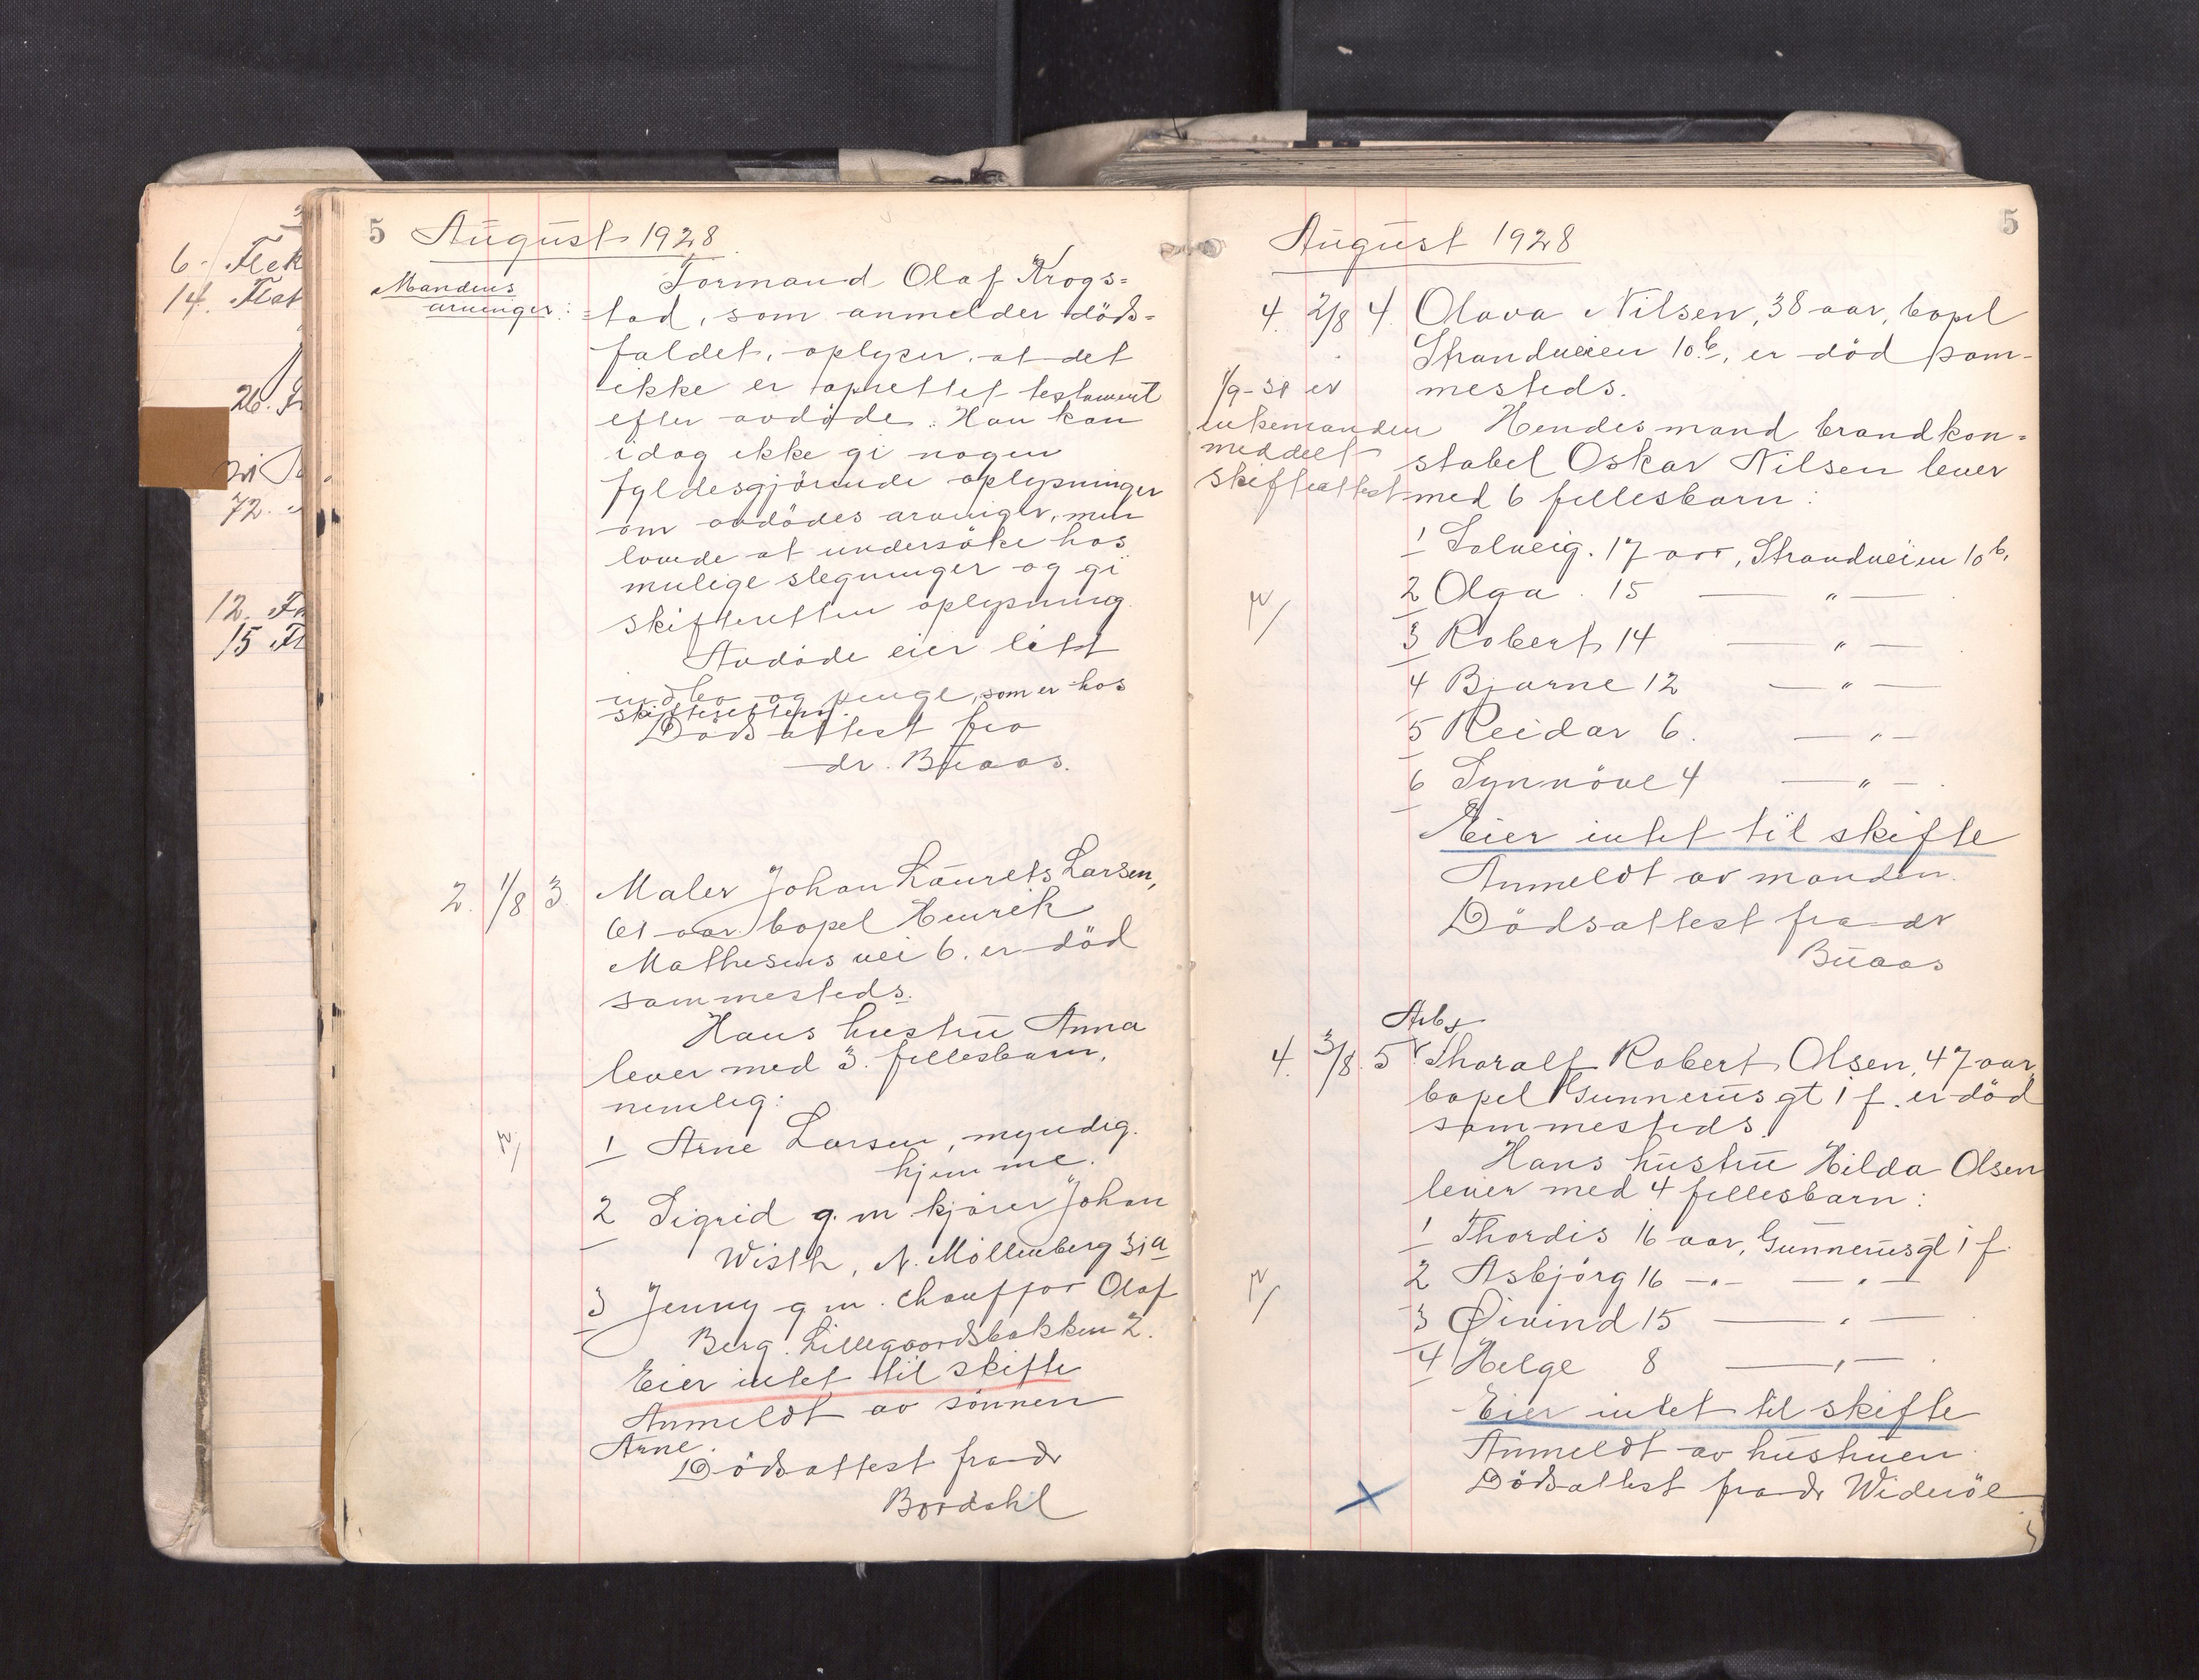 6. Flek
14. Flat
26.
72.
12.
15
5 August 1928
Mandens
arvinger:
Formand Olaf Krogs=
=tad, som anmelder döds=
faldet, oplyser, at det
ikke er oprettet testament
efter avdöde. Han kan
idag ikke gi nogen
fyldesgjörende oplysninger
om avdödes arvinger, men
lovede at undersöke hos
mulige slegninger og gi
skifteretten oplysning.
Avdöde eier litt
indbo og penge, som er hos
skifteretten.
Dödsattest fra
dr. Buaas.
2. 1/8 3. Maler Johan Laurets Larsen,
61 aar bopel Henrik
Mathesens vei 6. er död
sammesteds.
Hans hustru Anna
lever med 3 fellesbarn,
nemlig:
1 Arne Larsen, myndig.
hjemme.
2 Sigrid g. m. kjörer Johan
Wisth, N. Möllenberg 31a
3 Jenny g. m. chauffør Olaf
Berg. Lillegaardsbakken 2.
Eier intet til skifte
Anmeldt av sönnen
Arne.
Dödsattest fra dr
Bordahl
August 1928 5
4. 2/8 4. Olava Nilsen, 38 aar, bopel
Strandveien 10b, er död sam-
mesteds.
1/9-31 er
enkemanden
meddelt
skifteattest
Hendes mand brandkon=
stabel Oskar Nilsen lever
med 6 fellesbarn:
1 Solveig. 17 aar, Strandveien 10b.
2 Olga. 15 — " —
3 Robert 14 — " —
4 Bjarne 12 — " —
5 Reidar 6. — " —
6 Synnöve 4 — " —
Eier intet til skifte
Anmeldt av manden.
Dödsattest fra dr
Buaas
Arb.
4. 3/8. 5 Thoralf Robert Olsen, 47 aar,
bopel Gunnerusgt 1 f. er död
sammesteds.
Hans hustru Hilda Olsen
lever med 4 fellesbarn:
1 Thordis 16 aar, Gunnerusgt 1 f.
2 Asbjörg 16 —"— — " —
3 Øivind 15 — " —
4 Helge 8 — " —
Eier intet til skifte
Anmeldt av hustruen.
Dödsattest fra dr Wideröe